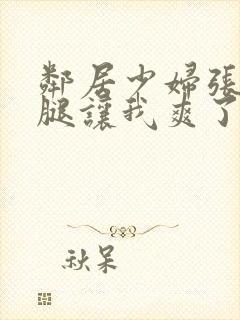 鄰居少婦張
腿讓我爽了
秋呆